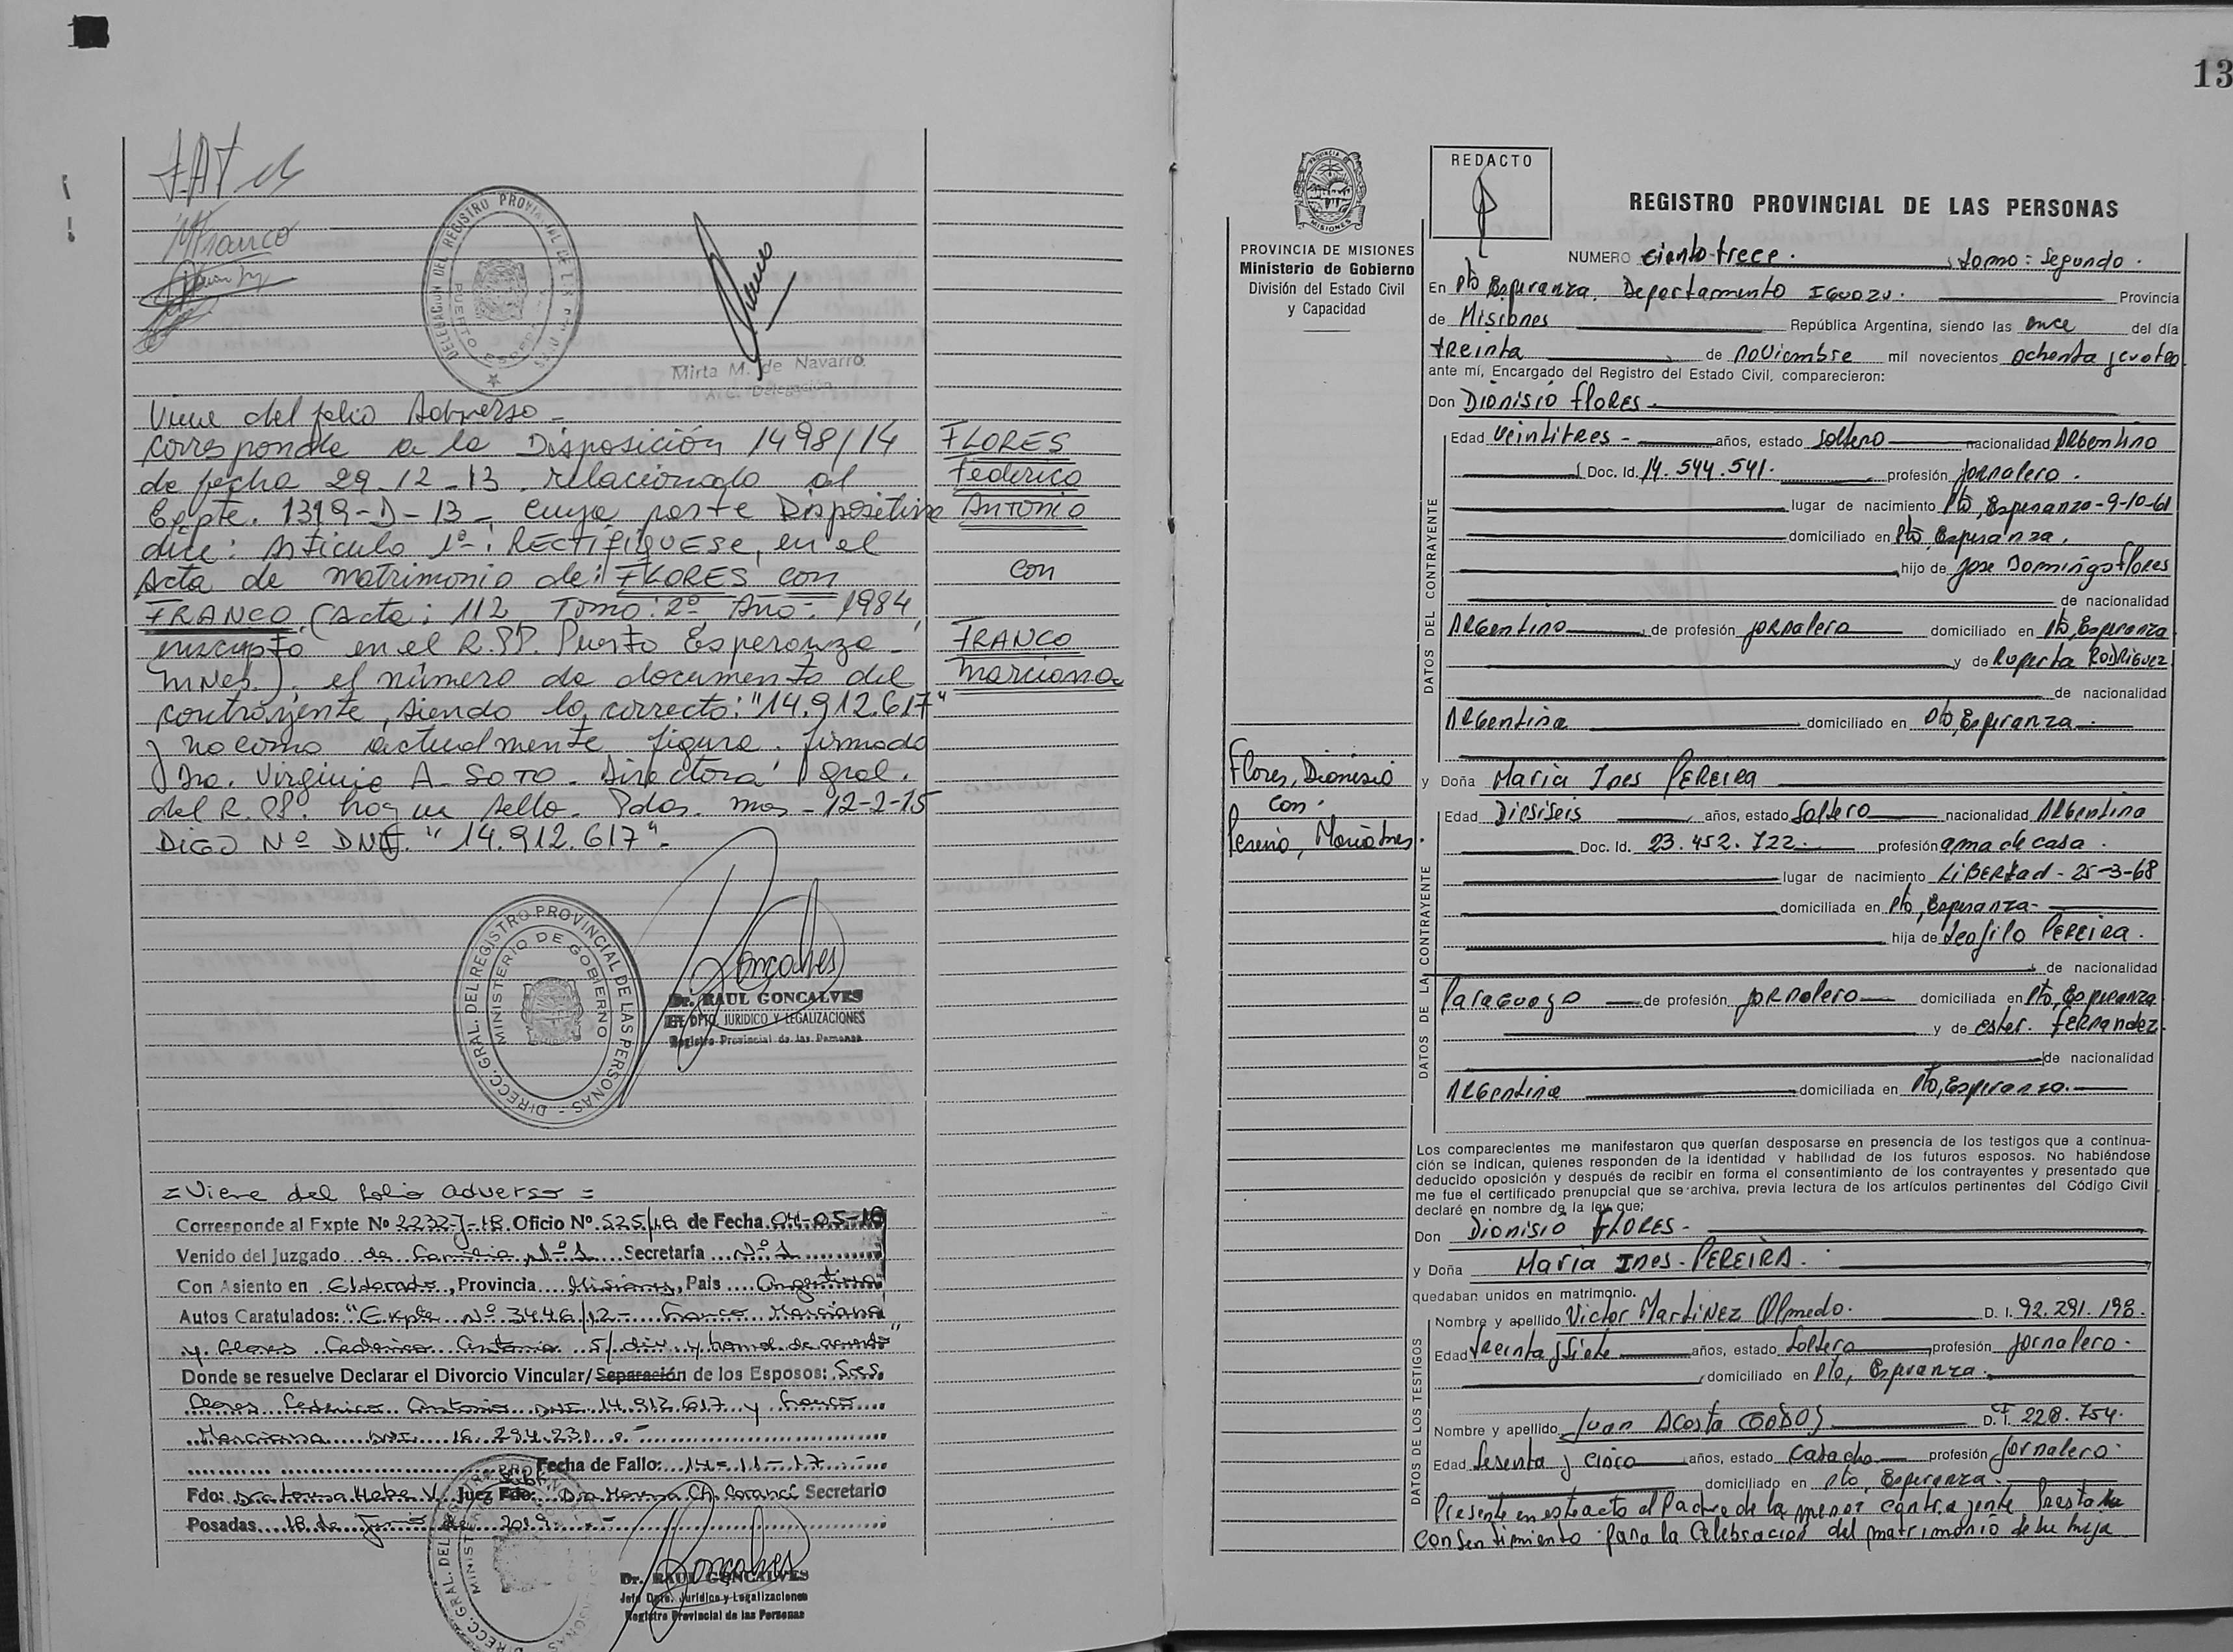 Franco
DELEGACION DEL REGISTRO PROVINCIAL DE LAS PERSONAS
PUERTO ESPERANZA
Mirta M. de Navarro
Viene del folio Adverso -
Corresponde a la Disposición 1498/14
de fecha 29-12-13 relacionado al
Expte. 1319-D-13-, cuya parte Dispositiva
dice: Articulo 1º: RECTIFIQUESE, en el
Acta de matrimonio de: FLORES con
FRANCO (Acta: 112, Tomo: 2º Año: 1984,
inscripto en el R.PP. Puerto Esperanza -
Mnes.), el número de documento del
contrayente, siendo lo correcto: "14.912.617"
y no como actualmente figura. firmado
Dra. Virginia A. SOTO - Directora Gral.
del R.PP. hay un sello. Pdas. mnes - 12-2-15
DIGO Nº DNI. "14.912.617".
FLORES
Federico
Antonio
con
FRANCO
Marciana
DIRECC. GRAL. DEL REGISTRO PROVINCIAL DE LAS PERSONAS
MINISTERIO DE GOBIERNO
Dr. RAUL GONCALVES
JEFE DPTO. JURIDICO Y LEGALIZACIONES
Registro Provincial de las Personas
= Viene del folio adverso =
Corresponde al Expte Nº 2232-J-18 Oficio Nº 525/18 de Fecha 04-05-18
Venido del Juzgado de Familia Nº 1 Secretaría Nº 1
Con Asiento en Eldorado, Provincia Misiones, Pais Argentina
Autos Caratulados: "Expte Nº 3446/12 - Franco Marciana
y Flores Federico Antonio s/ div. y homol. de acuerdo"
Donde se resuelve Declarar el Divorcio Vincular/Separación de los Esposos: Sres.
Flores Federico Antonio DNI 14.912.617 y Franco
Marciana DNI 16.294.231.
Fecha de Fallo: 14-11-17
Fdo: Dra V. Juez Fdo: Dra Secretario
Posadas 18 de de 2019
DIRECC. GRAL. DEL
Dr. RAUL GONCALVES
Jefe Dpto. Jurídico y Legalizaciones
Registro Provincial de las Personas
13
PROVINCIA DE MISIONES
Ministerio de Gobierno
División del Estado Civil
y Capacidad
REDACTO
REGISTRO PROVINCIAL DE LAS PERSONAS
NUMERO ciento trece. tomo: segundo.
En Pto Esperanza. Departamento IGUAZU. Provincia
de Misiones República Argentina, siendo las once del día
treinta de noviembre mil novecientos ochenta y cuatro
ante mí, Encargado del Registro del Estado Civil, comparecieron:
Don Dionisio FLORES
DATOS DEL CONTRAYENTE
Edad Veintitres - años, estado soltero nacionalidad Argentino
Doc. Id. 14.544.541. profesión jornalero.
lugar de nacimiento Pto, Esperanza - 9-10-61
domiciliado en Pto, Esperanza.
hijo de Jose Domingo Flores
de nacionalidad
Argentino de profesión jornalero domiciliado en Pto, Esperanza
y de Ruperta RODRIGUEZ
de nacionalidad
Argentina domiciliado en Pto, Esperanza.
Flores, Dionisio
con.
Pereira, María Ines.
y Doña Maria Ines PEREIRA
DATOS DE LA CONTRAYENTE
Edad Diesiseis años, estado Soltera nacionalidad Argentina
Doc. Id. 23.452.722. profesión ama de casa.
lugar de nacimiento LIBERtad - 25-3-68
domiciliada en Pto, Esperanza -
hija de Teofilo PEREIRA.
de nacionalidad
Paraguayo de profesión jornalero domiciliada en Pto, Esperanza
y de ester. FERNandez.
de nacionalidad
Argentina domiciliada en Pto, Esperanza.
Los comparecientes me manifestaron que querían desposarse en presencia de los testigos que a continua-
ción se indican, quienes responden de la identidad y habilidad de los futuros esposos. No habiéndose
deducido oposición y después de recibir en forma el consentimiento de los contrayentes y presentado que
me fue el certificado prenupcial que se archiva, previa lectura de los artículos pertinentes del Código Civil
declaré en nombre de la ley que;
Don Dionisio FLORES -
y Doña Maria Ines - PEREIRA.
quedaban unidos en matrimonio.
DATOS DE LOS TESTIGOS
Nombre y apellido Victor MartiNez Olmedo. D. I. 92.291.198.
Edad treinta y Siete años, estado Soltero profesión jornalero.
domiciliado en Pto, Esperanza.
Nombre y apellido Juan Acosta GODOY D. I. 228.754.
Edad Sesenta y Cinco años, estado Casado profesión jornalero.
domiciliado en Pto, Esperanza.
Presente en este acto el Padre de la menor contrayente Presta su
Consentimiento para la Celebracion del matrimonio de su hija